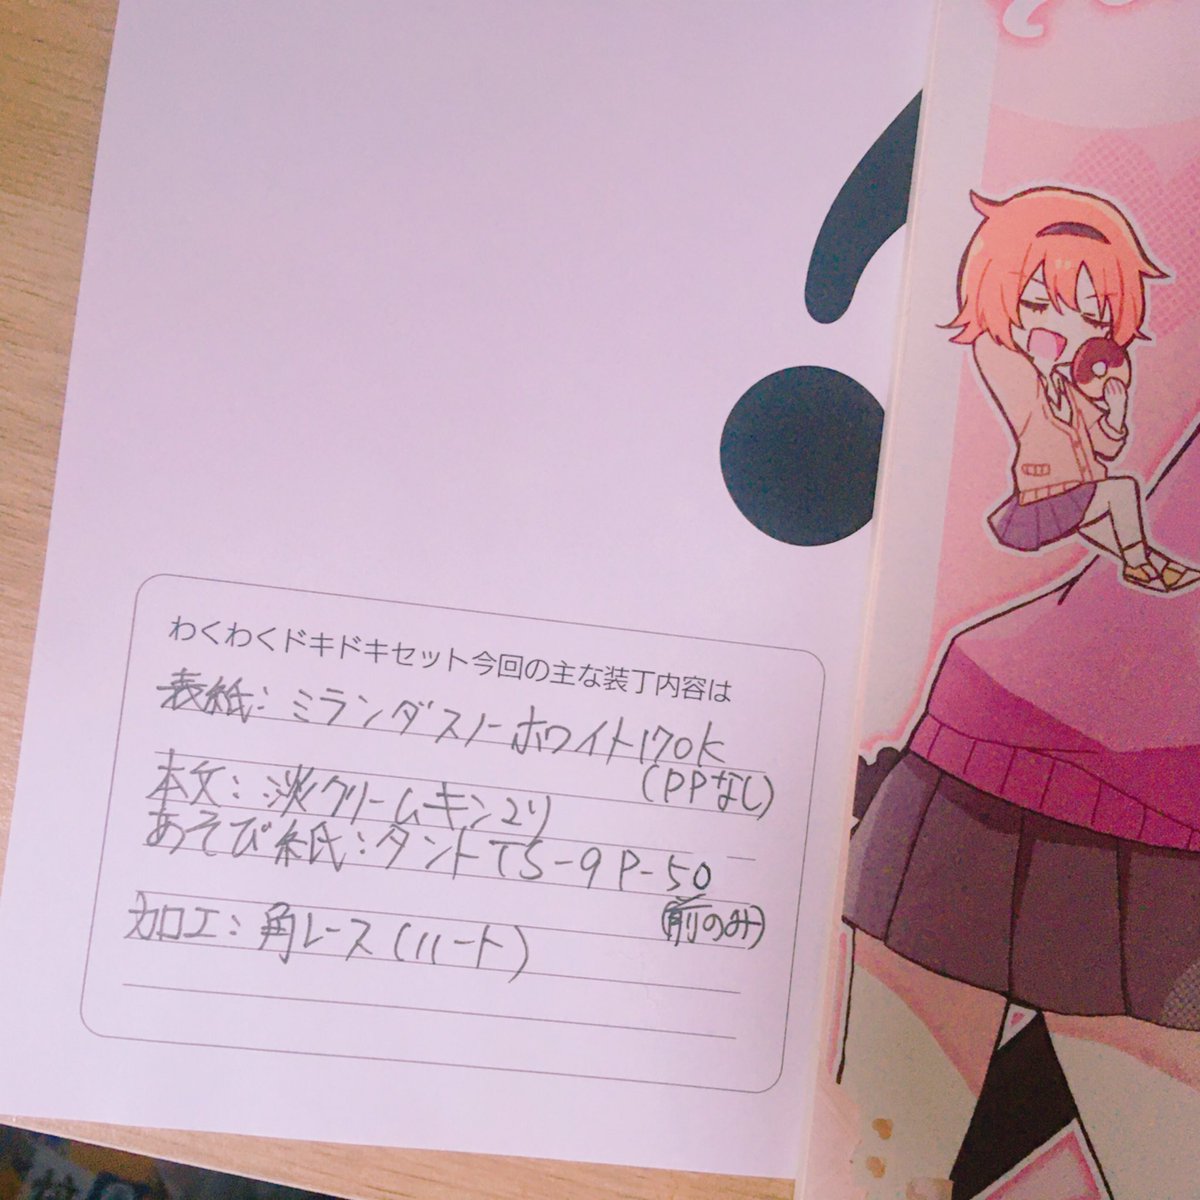 わくわくドキドキセット今回の主な装丁内容は
表紙：ミランダスノーホワイト170K
(PPなし)
本文：淡クリームキンマリ
あそび紙：タントTS-9 P-50
(前のみ)
加工：角レース(ハート)